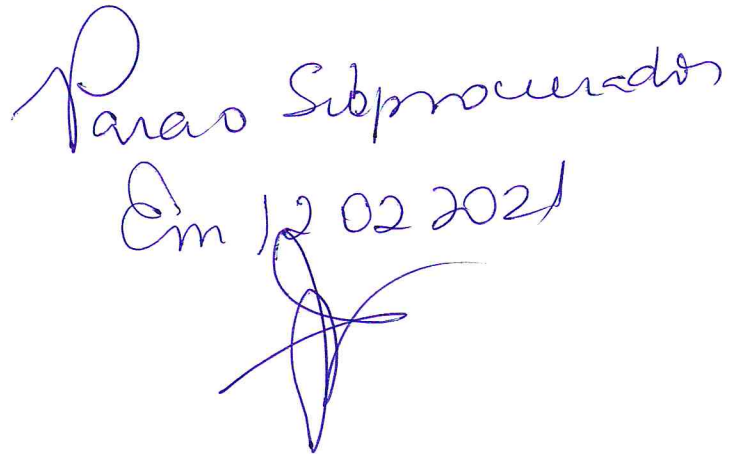 Para o Subprocurador
Em 12 02 2021